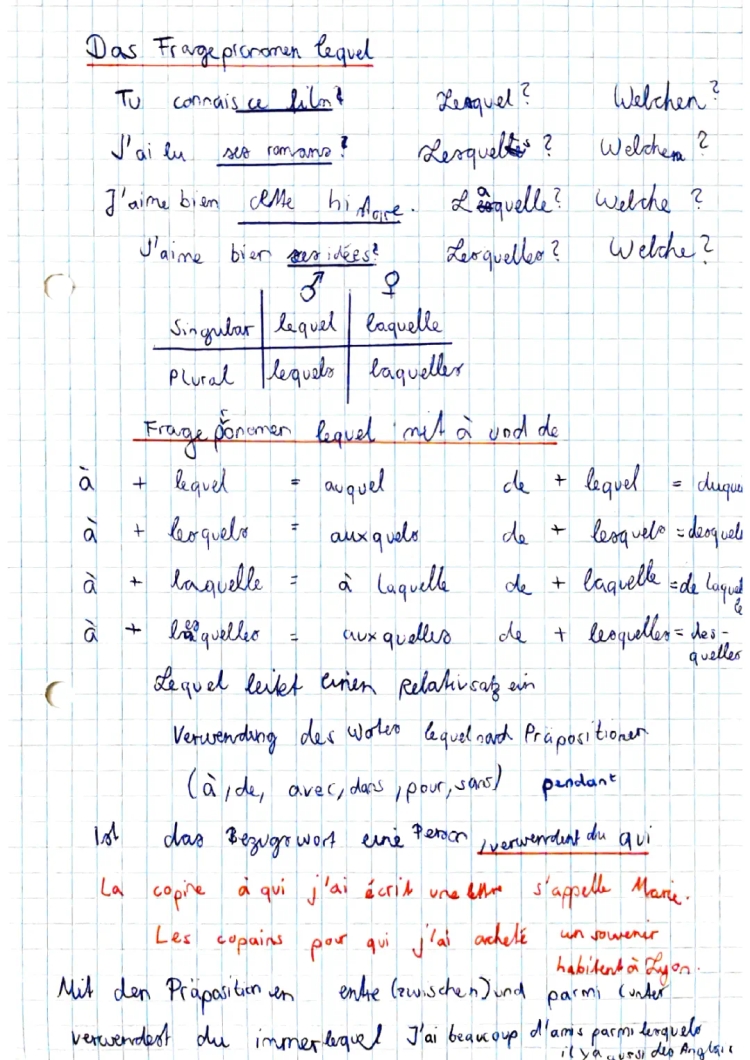 Das Fragepronomen lequel
Tu connais ce film? Lequel? Welchen?
J'ai lu ses romans? Lesquels? Welchen?
J'aime bien cette histoire. Laquelle? Welche?
J'aime bien ses idées? Lesquelles? Welche?
♂ ♀
Singular lequel laquelle
Plural lequels laquelles
Fragepronomen lequel mit à und de
à + lequel = auquel de + lequel = duque
à + lesquels = auxquels de + lesquels = desquels
à + laquelle = à laquelle de + laquelle = de laquel
le
à + lesquelles = auxquelles de + lesquelles = des-
quelles
Lequel leitet einen Relativsatz ein
Verwendung des Wortes lequel nach Präpositionen
(à, de, avec, dans, pour, sans) pendant
Ist das Bezugswort eine Person, verwendest du qui
La copine à qui j'ai écrit une lettre s'appelle Marie.
Les copains pour qui j'ai acheté un souvenir
habitent à Lyon.
Mit den Präpositionen entre (zwischen) und parmi (unter
verwendest du immer lequel J'ai beaucoup d'amis parmi lesquels
il y a aussi des Anglais